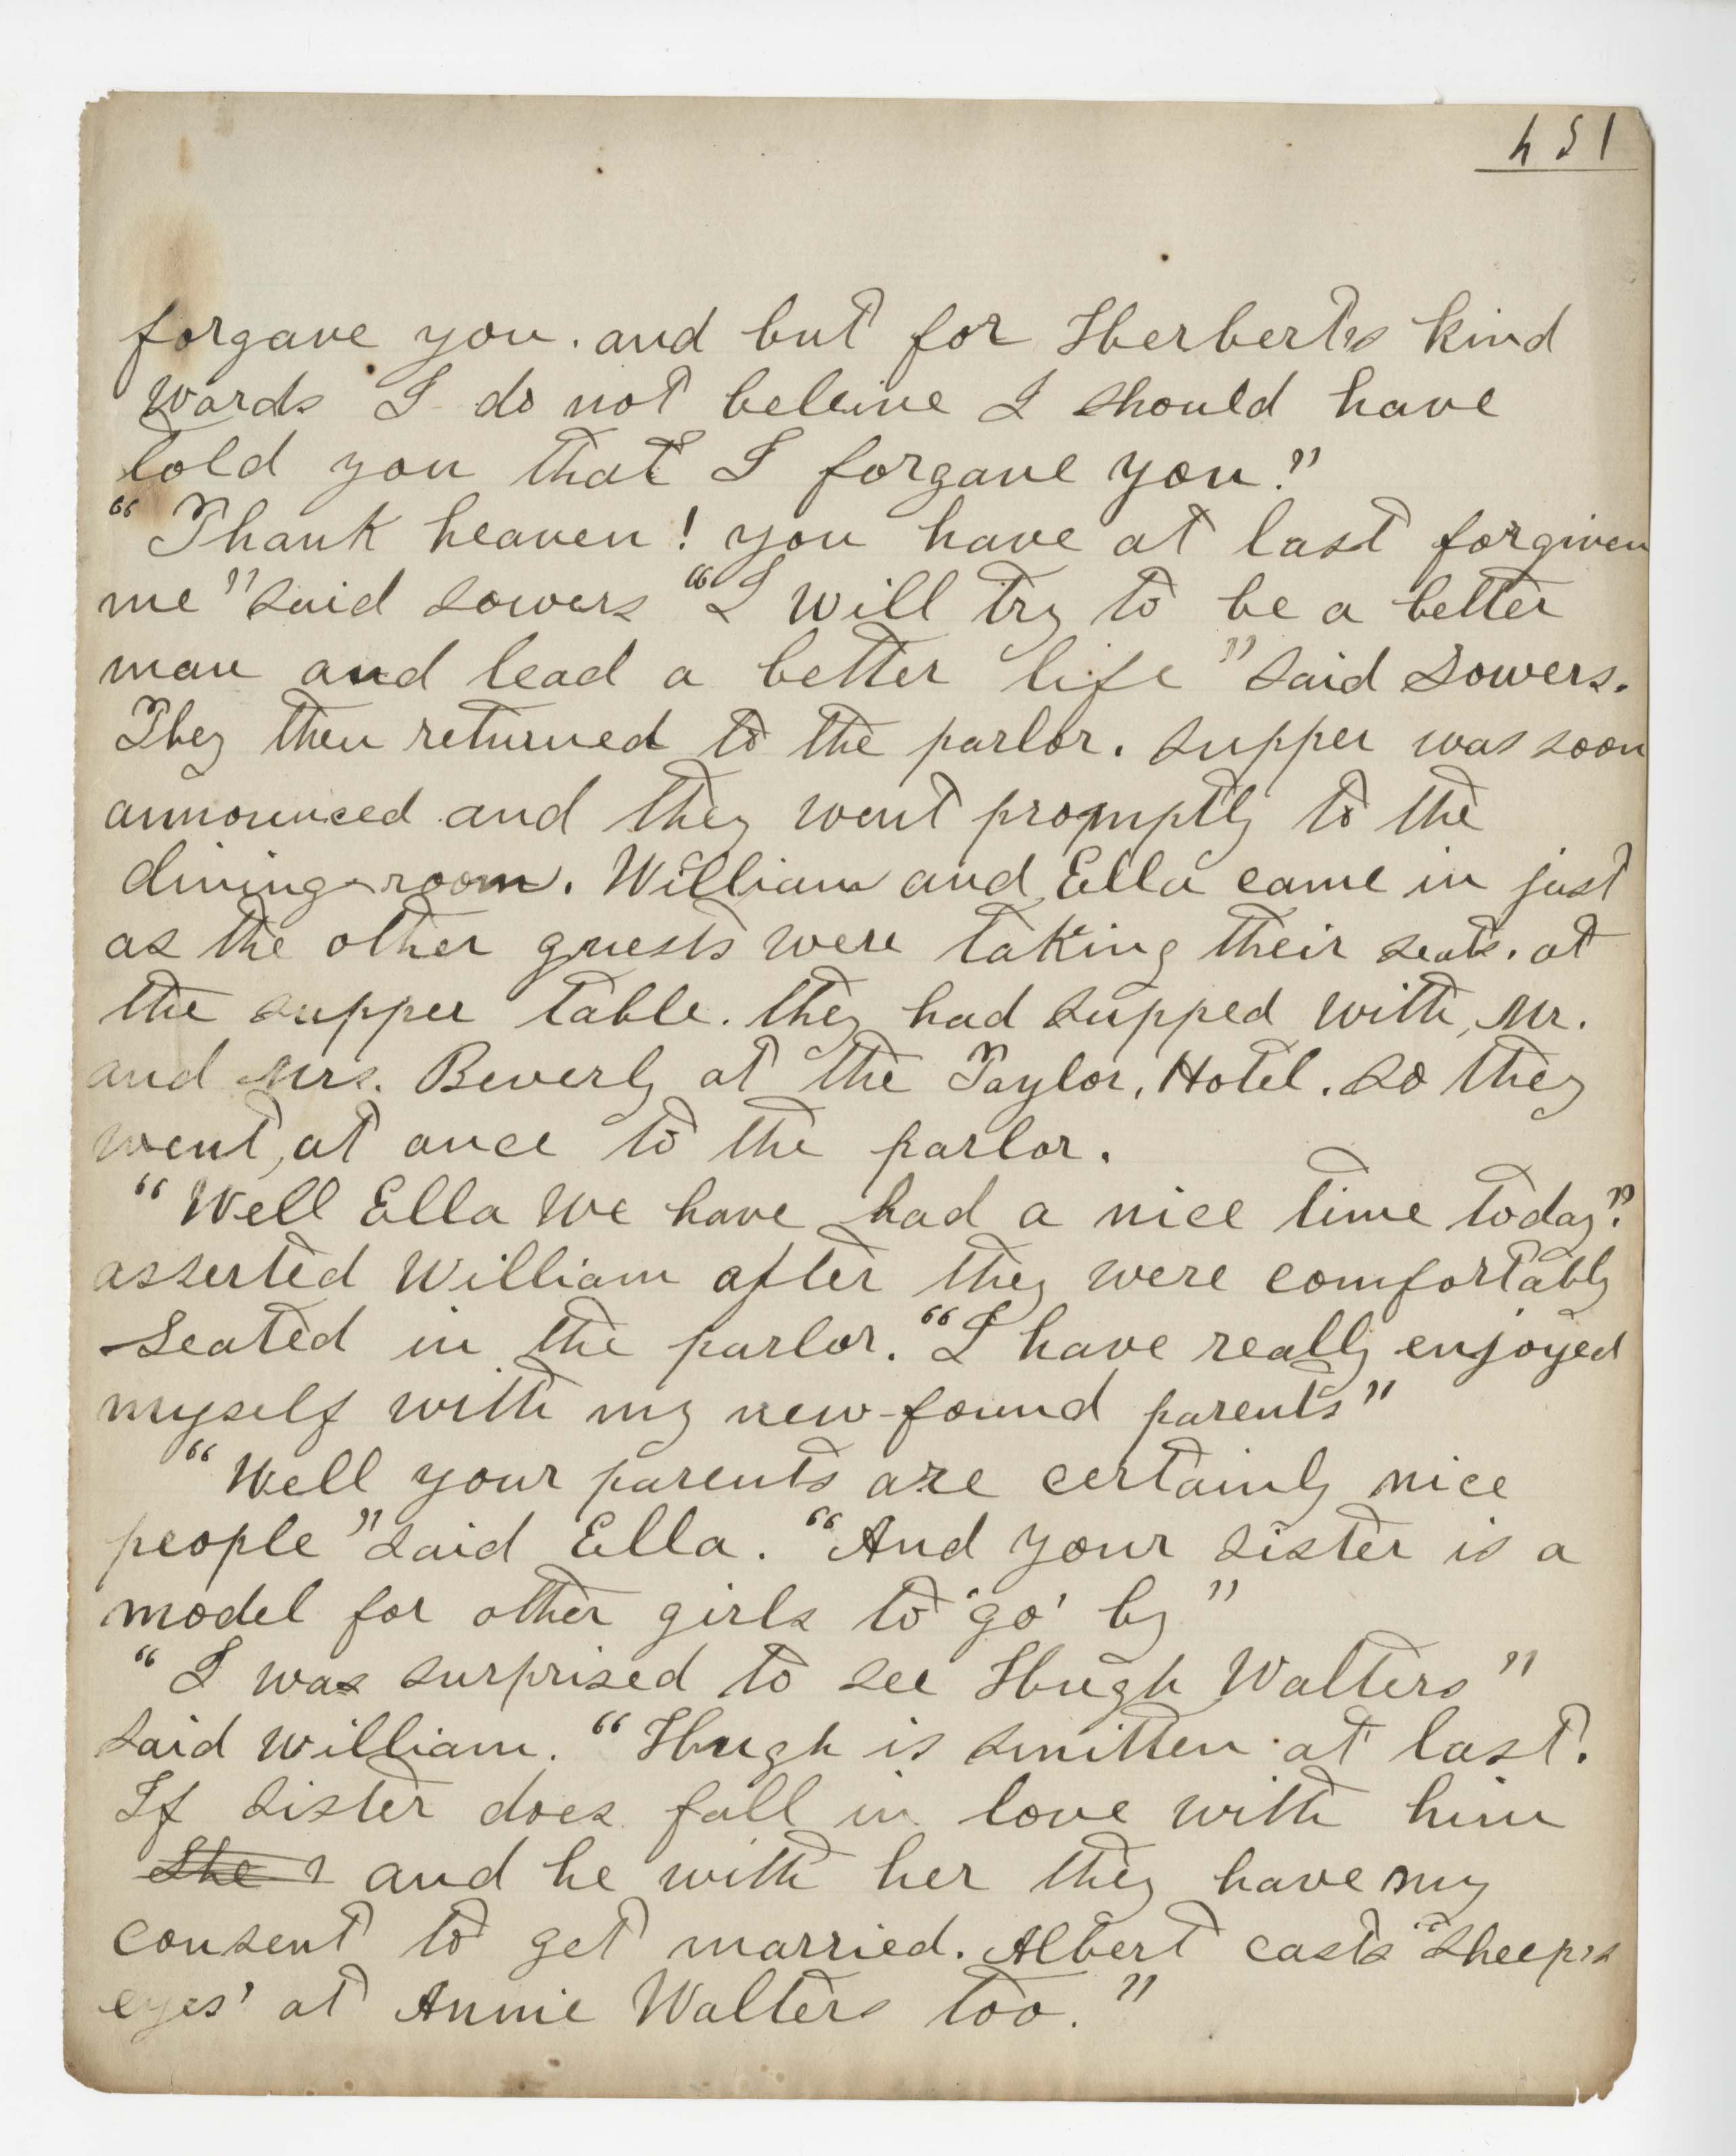 451
forgave you. and but for Herbert's kind
words I do not beleive I should have
told you that I forgave you."
"Thank heaven! you have at last forgiven
me" said Sowers "I will try to be a better
man and lead a better life" said Sowers.
They then returned to the parlor. supper was soon
announced and they went promptly to the
dining-room. William and Ella came in just
as the other guests were taking their seats. at
the supper table. they had supped with, Mr.
and Mrs. Beverly at the Taylor, Hotel. so they
went, at once to the parlor.
"Well Ella we have had a nice time today."
asserted William after they were comfortably
seated in the parlor. "I have really enjoyed
myself with my new-found parents"
"Well your parents are certainly nice
people" said Ella. "And your sister is a
model for other girls to 'go' by"
"I was surprised to see Hugh Walters"
said William. "Hugh is smitten at last.
If sister does fall in love with him
She and he with her they have my
consent to get married. Albert casts "sheep's
eyes' at Annie Walters too."